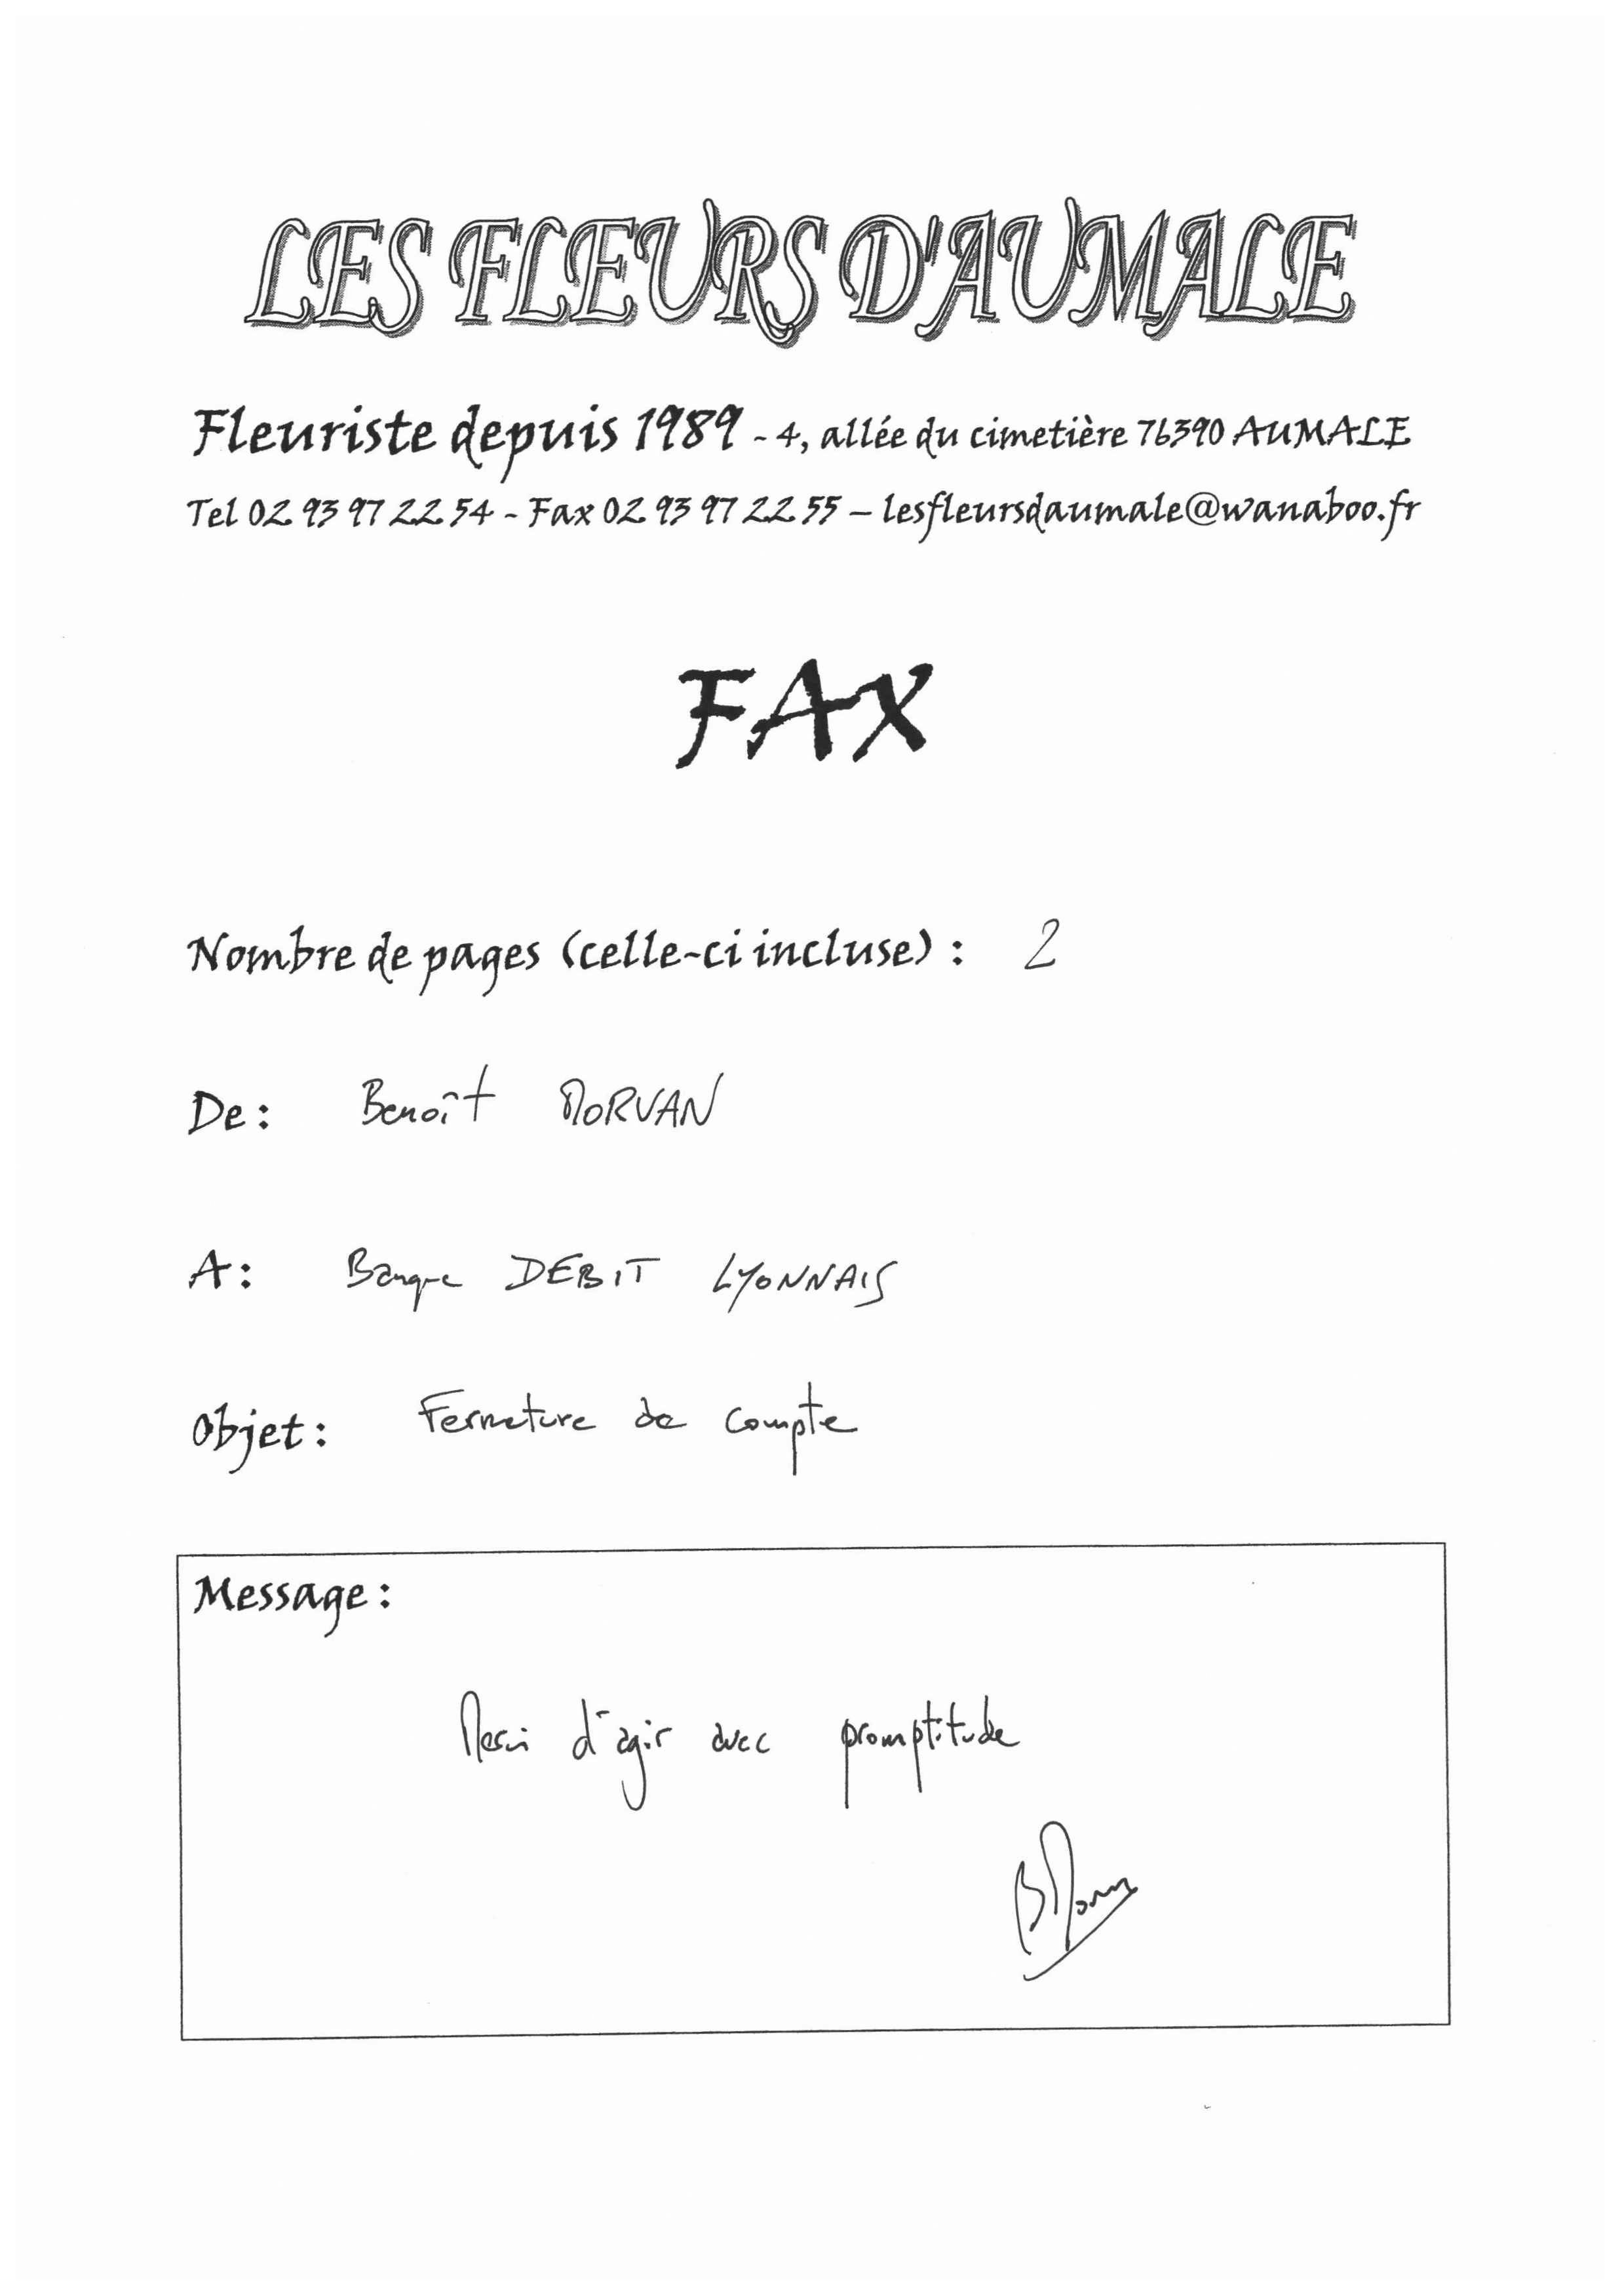 LES FLEURS D'AUMALE
Fleuriste depuis 1989 - 4, allée du cimetière 76390 AUMALE
Tel 02 93 97 22 54 - Fax 02 93 97 22 55 – lesfleursdaumale@wanaboo.fr
FAX
Nombre de pages (celle-ci incluse) : 2
De : Benoît MORVAN
A : Banque DEBIT LYONNAIS
Objet : Fermeture de compte
Message :
Merci d'agir avec promptitude
BMorvan